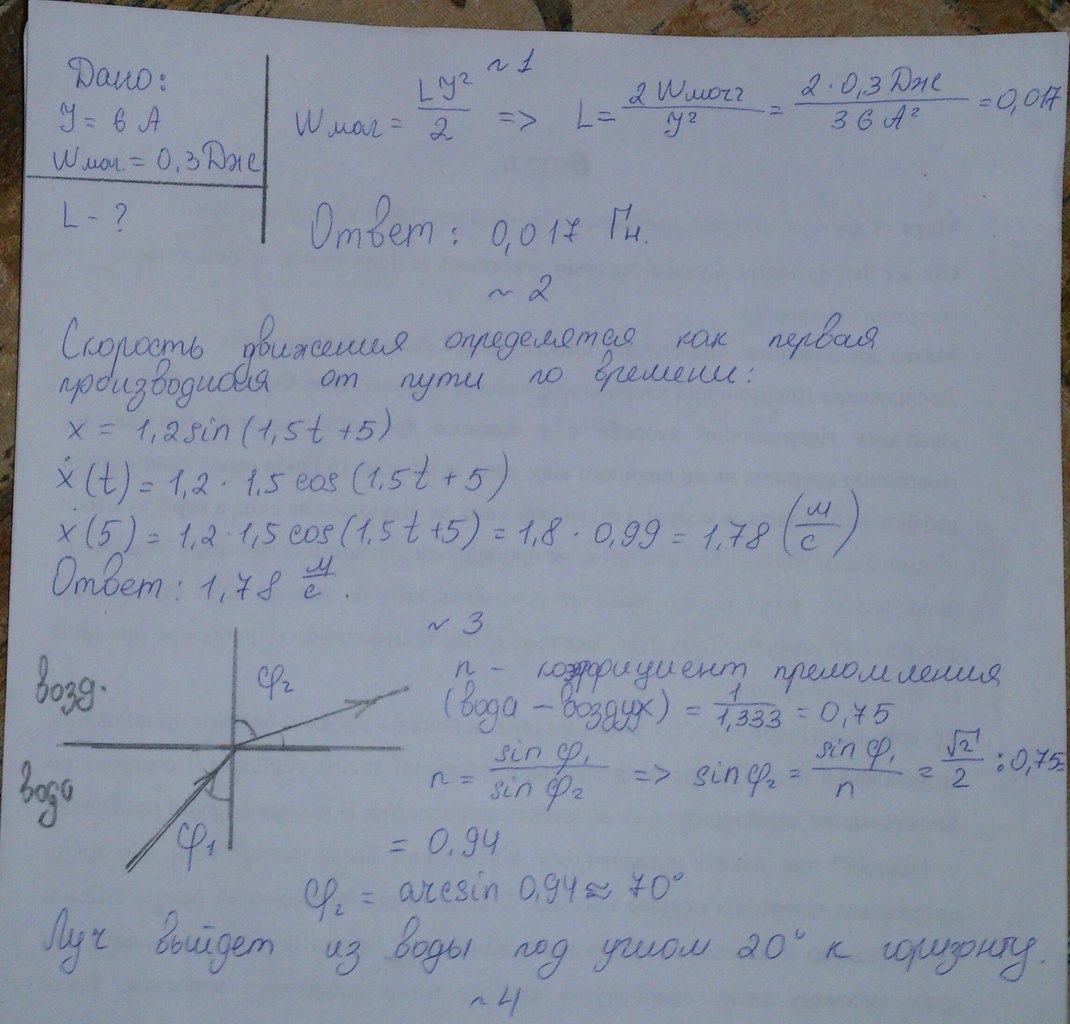 Дано:
J = 6 A
Wмаг. = 0,3 Дж
L - ?
~1
Wмаг = LJ²/2 => L = 2Wмагг/J² = 2·0,3 Дж/36 A² = 0,017
Ответ: 0,017 Гн.
~2
Скорость движения определятся как первая
производная от пути по времени:
x = 1,2 sin (1,5t + 5)
ẋ (t) = 1,2 · 1,5 cos (1,5t + 5)
ẋ (5) = 1,2 · 1,5 cos (1,5t + 5) = 1,8 · 0,99 = 1,78 (м/с)
Ответ: 1,78 м/с.
~3
возд.
вода
φ₂
φ₁
n - коэффициент преломления
(вода - воздух) = 1/1,333 = 0,75
n = sin φ₁/sin φ₂ => sin φ₂ = sin φ₁/n = √2/2 : 0,75=
= 0,94
φ₂ = arcsin 0,94 ≈ 70°
Луч выйдет из воды под углом 20° к горизонту.
~4